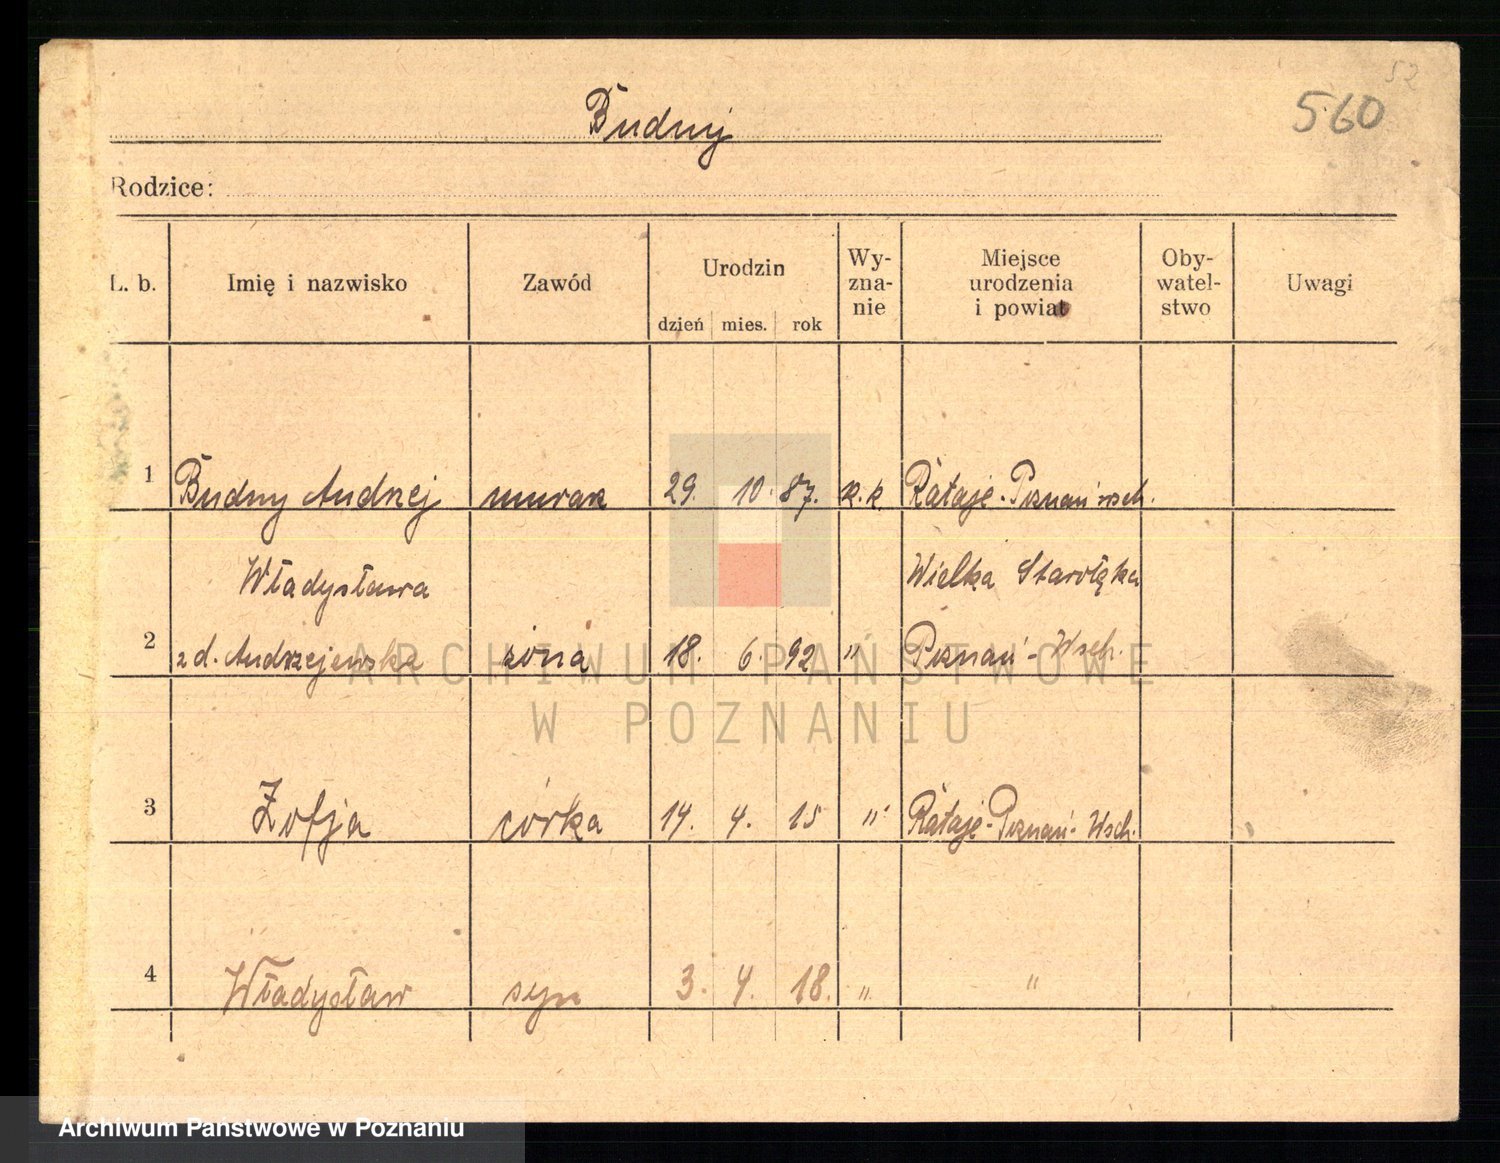 52
560
Budny
Rodzice:
L. b. Imię i nazwisko Zawód Urodzin dzień mies. rok Wy-zna-nie Miejsce urodzenia i powiat Oby-watel-stwo Uwagi
1 Budny Andrzej murarz 29. 10. 87. r.k. Rataje-Poznań wsch.
Władysława Wielka Starołęka
2 z d. Andrzejewska żona 18. 6. 92 " Poznań-Wsch.
3 Zofja córka 14. 4. 15 " Rataje-Poznań-Wsch.
4 Władysław syn 3. 4. 18. " "
ARCHIWUM PAŃSTWOWE
W POZNANIU
Archiwum Państwowe w Poznaniu